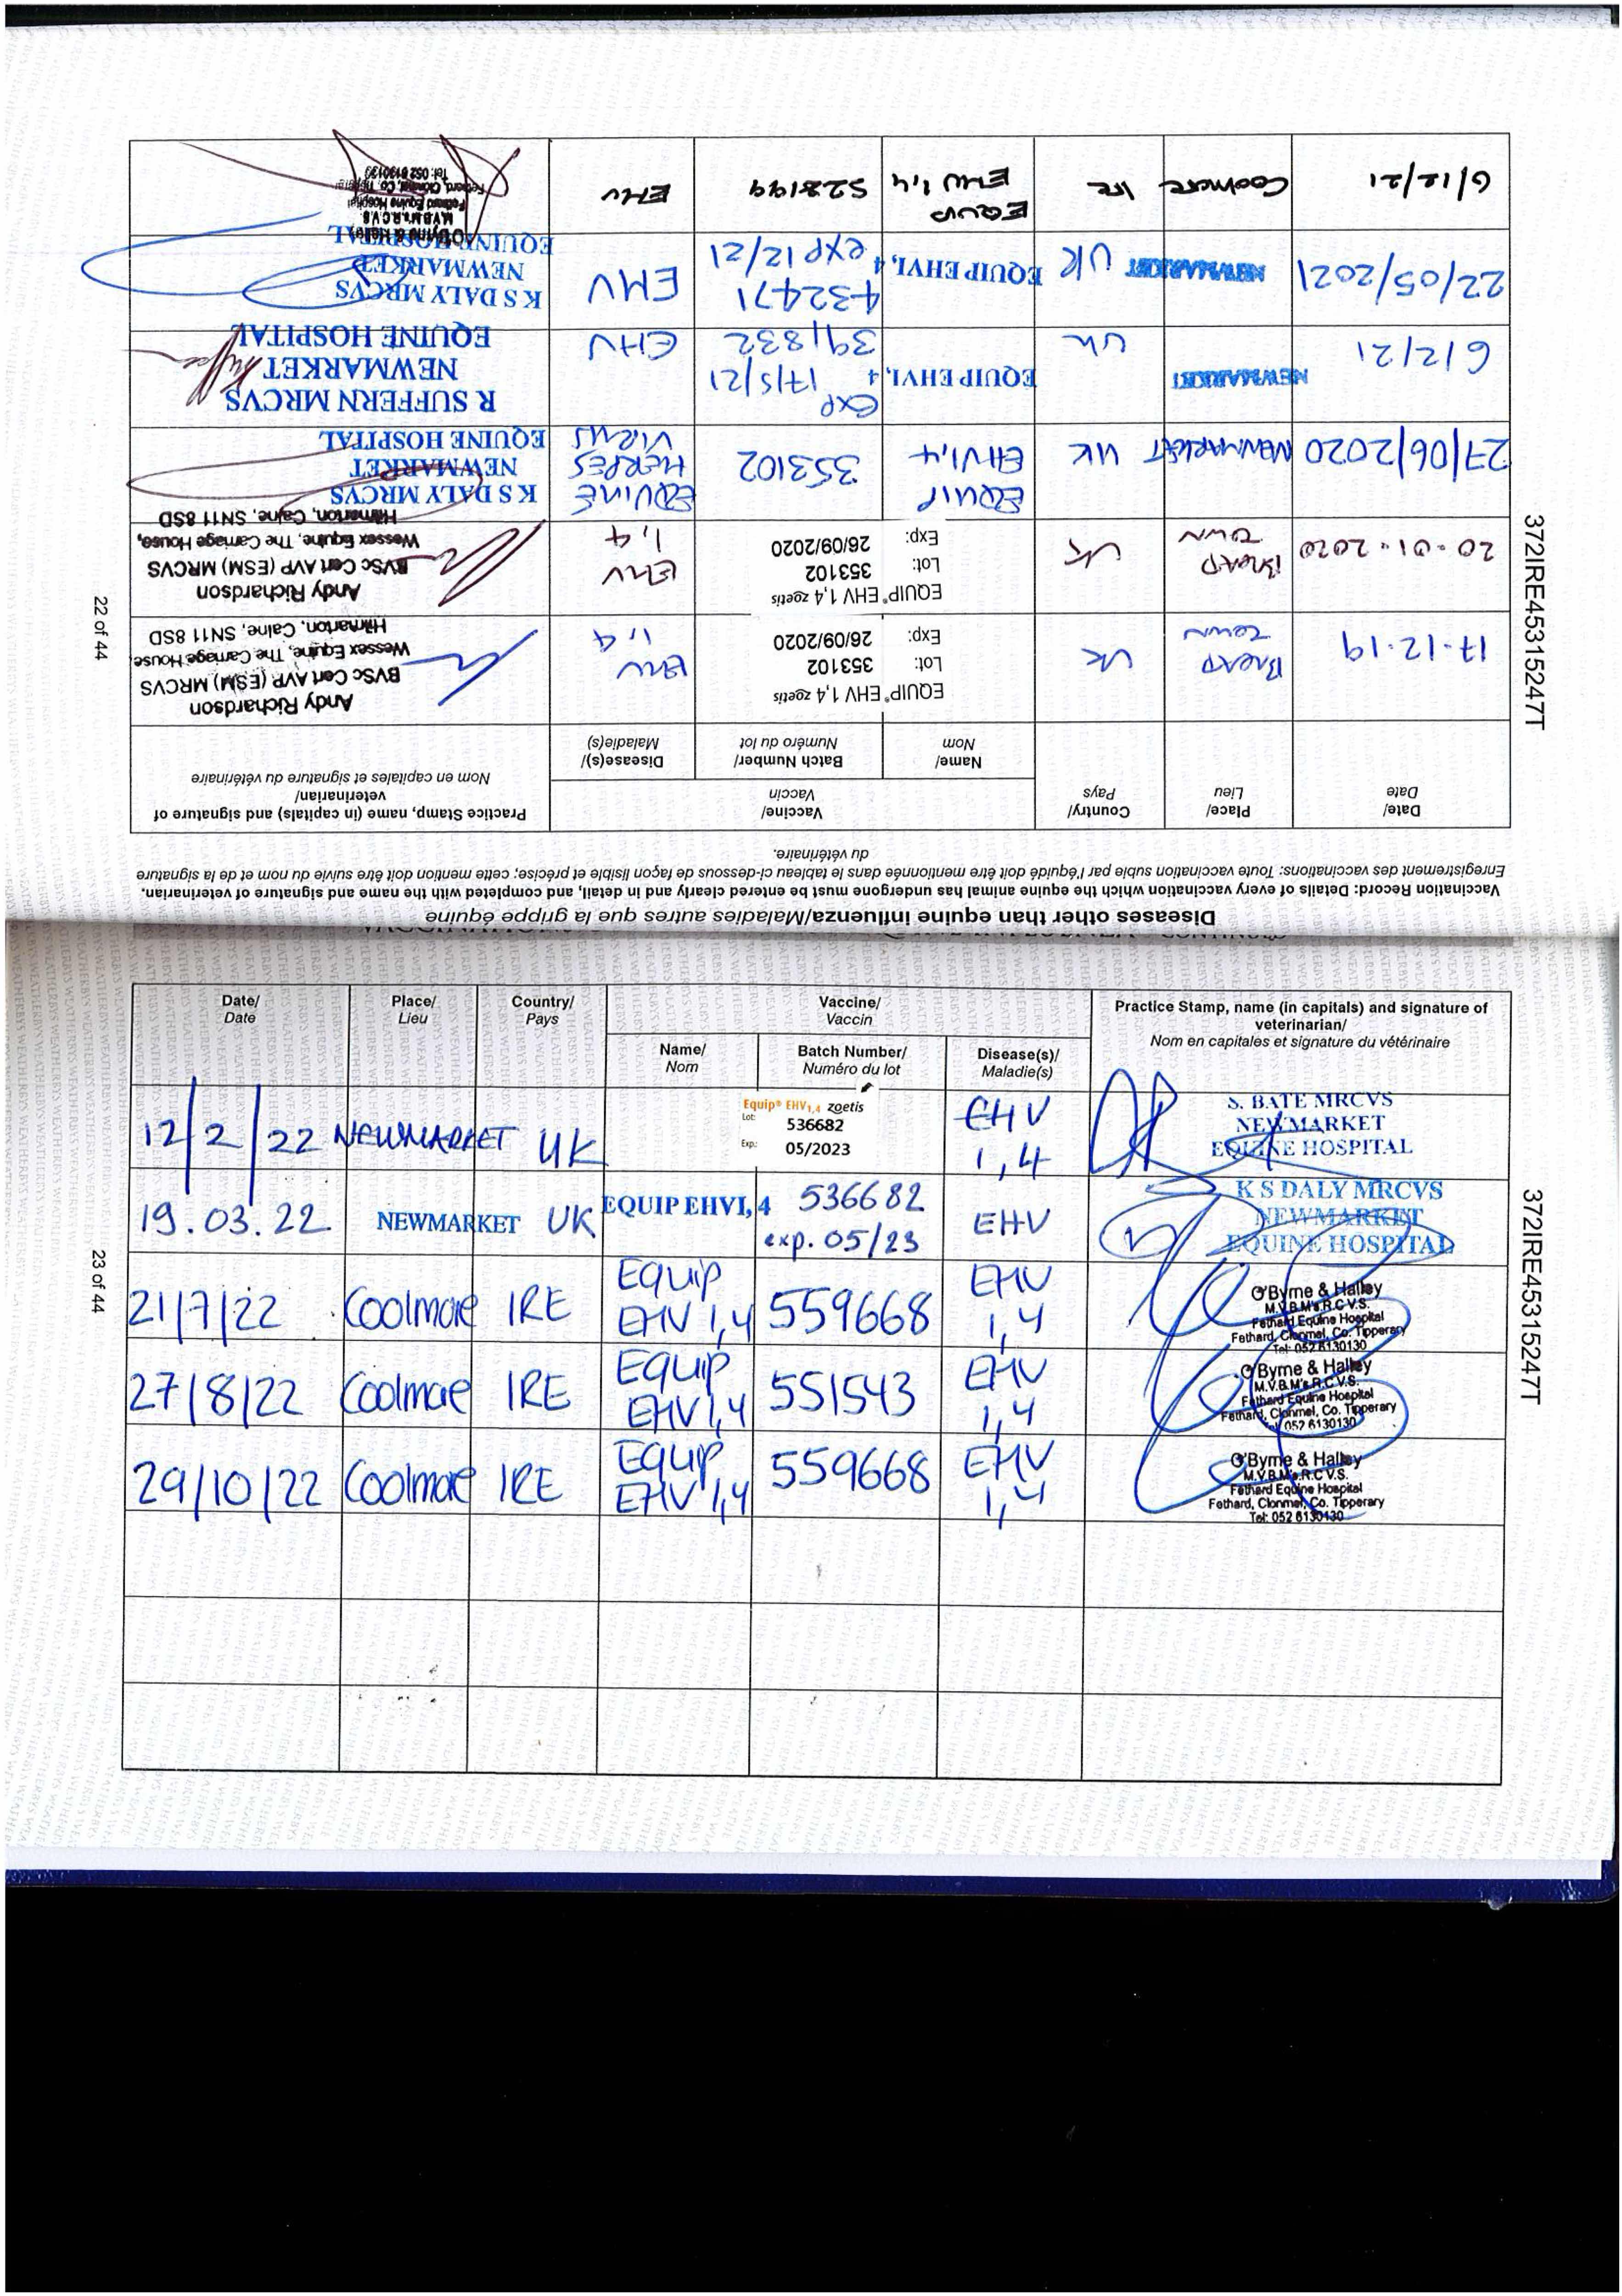 Diseases other than equine influenza/Maladies autres que la grippe équine
Vaccination Record: Details of every vaccination which the equine animal has undergone must be entered clearly and in detail, and completed with the name and signature of veterinarian.
Enregistrement des vaccinations: Toute vaccination subie par l'équidé doit être mentionnée dans le tableau ci-dessous de façon lisible et précise; cette mention doit être suivie du nom et de la signature
du vétérinaire.
Date/
Date
Place/
Lieu
Country/
Pays
Vaccine/
Vaccin
Name/
Nom
Batch Number/
Numéro du lot
Disease(s)/
Maladie(s)
Practice Stamp, name (in capitals) and signature of
veterinarian/
Nom en capitales et signature du vétérinaire
17.12.19
BROAD
TOWN
UK
EQUIP® EHV 1,4 zoetis
Lot: 353102
Exp: 26/09/2020
EHV
1,4
Andy Richardson
BVSc Cert AVP (ESM) MRCVS
Wessex Equine, The Carriage House
Hilmarton, Calne, SN11 8SD
20.01.2020
BROAD
TOWN
UK
EQUIP® EHV 1,4 zoetis
Lot: 353102
Exp: 26/09/2020
EHV
1,4
Andy Richardson
BVSc Cert AVP (ESM) MRCVS
Wessex Equine, The Carriage House,
Hilmarton, Calne, SN11 8SD
27/06/2020
NEWMARKET
UK
EQUIP
EHV1,4
353102
EQUINE
HERPES
VIRUS
K S DALY MRCVS
NEWMARKET
EQUINE HOSPITAL
6/2/21
NEWMARKET
UK
EQUIP EHVI,4
exp
17/5/21
391832
EHV
R SUFFERN MRCVS
NEWMARKET
EQUINE HOSPITAL
22/05/2021
NEWMARKET
UK
EQUIP EHVI,4
432471
exp 12/21
EHV
K S DALY MRCVS
NEWMARKET
EQUINE HOSPITAL
6/12/21
Coolmore
IRE
EQUIP
EHV 1,4
528199
EHV
O'Byrne & Halley
M.V.B.M's.R.C.V.S.
Fethard Equine Hospital
Fethard, Clonmel, Co. Tipperary
Tel: 052 6130130
372IRE45315247T
22 of 44
Date/
Date
Place/
Lieu
Country/
Pays
Vaccine/
Vaccin
Name/
Nom
Batch Number/
Numéro du lot
Disease(s)/
Maladie(s)
Practice Stamp, name (in capitals) and signature of
veterinarian/
Nom en capitales et signature du vétérinaire
12/2/22
NEWMARKET
UK
Equip® EHV1,4 zoetis
Lot: 536682
Exp: 05/2023
EHV
1,4
S. BATE MRCVS
NEWMARKET
EQUINE HOSPITAL
19.03.22
NEWMARKET
UK
EQUIP EHVI,4
536682
exp. 05/23
EHV
K S DALY MRCVS
NEWMARKET
EQUINE HOSPITAL
21/7/22
Coolmore
IRE
Equip
EHV 1,4
559668
EHV
1,4
O'Byrne & Halley
M.V.B.M's.R.C.V.S.
Fethard Equine Hospital
Fethard, Clonmel, Co. Tipperary
Tel: 052 6130130
27/8/22
Coolmore
IRE
Equip
EHV 1,4
551543
EHV
1,4
O'Byrne & Halley
M.V.B.M's.R.C.V.S.
Fethard Equine Hospital
Fethard, Clonmel, Co. Tipperary
Tel: 052 6130130
29/10/22
Coolmore
IRE
Equip
EHV 1,4
559668
EHV
1,4
O'Byrne & Halley
M.V.B.M's.R.C.V.S.
Fethard Equine Hospital
Fethard, Clonmel, Co. Tipperary
Tel: 052 6130130
372IRE45315247T
23 of 44